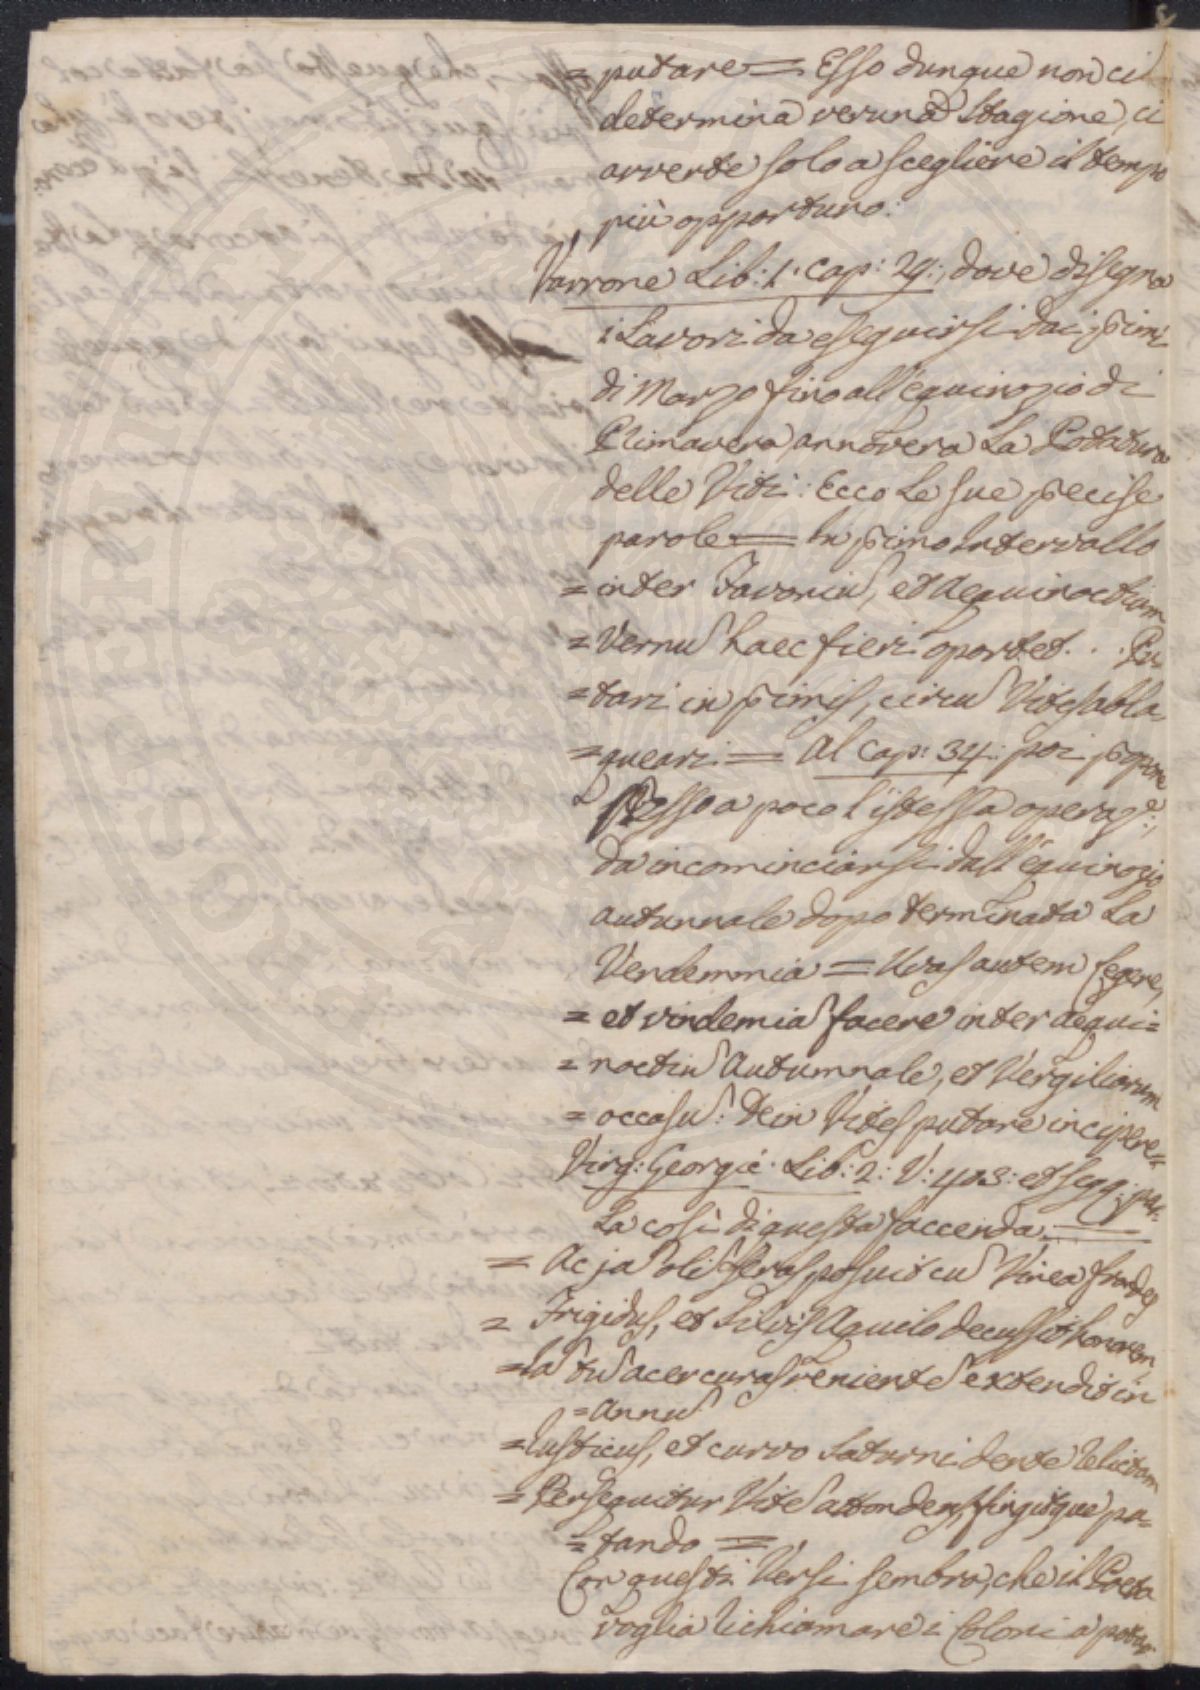 = putare = Esso dunque non ci
determina veruna Stagione, ci
avverte solo a scegliere il tempo
più opportuno:
Varrone Lib: 1. Cap: 29:, dove disegna
i Lavori da eseguirsi dai primi
di Marzo fino all'equinozio di
Primavera, annovera La Potatura
delle Viti: Ecco Le sue precise
parole = In primo Intervallo
= inter Favoniu, et Aequinoctium
= Vernu haec fieri oportet . . . Pu
= tari in primis, circu Vites abla
= queari = Al Cap: 34: poi propone
appresso a poco l'istessa operaz:e,
da incominciarsi dall'equinozio
autunnale dopo terminata La
Vendemmia = Uvas autem Legere,
= et vindemia facere inter aequi=
= noctiu Autumnale, et Vergiliarum
= occasu: Dein Vites putare incipere=
Virg: Georgic. Lib: 2: V: 403: et segg: par:
La così di questa faccenda =
= Ac ja oli seras posuit cu Vinea frondes
= Frigidus, et Silvis Aquilo decussit honorem,
= Ja tu acer curas veniente extendit in
= Annu
= Rusticus, et curvo Saturni dente Relictam
= Persequitur Vite attondens, fingitque pu=
= tando =
Con questi Versi sembra, che il Poeta
Voglia Richiamare i Coloni a potar